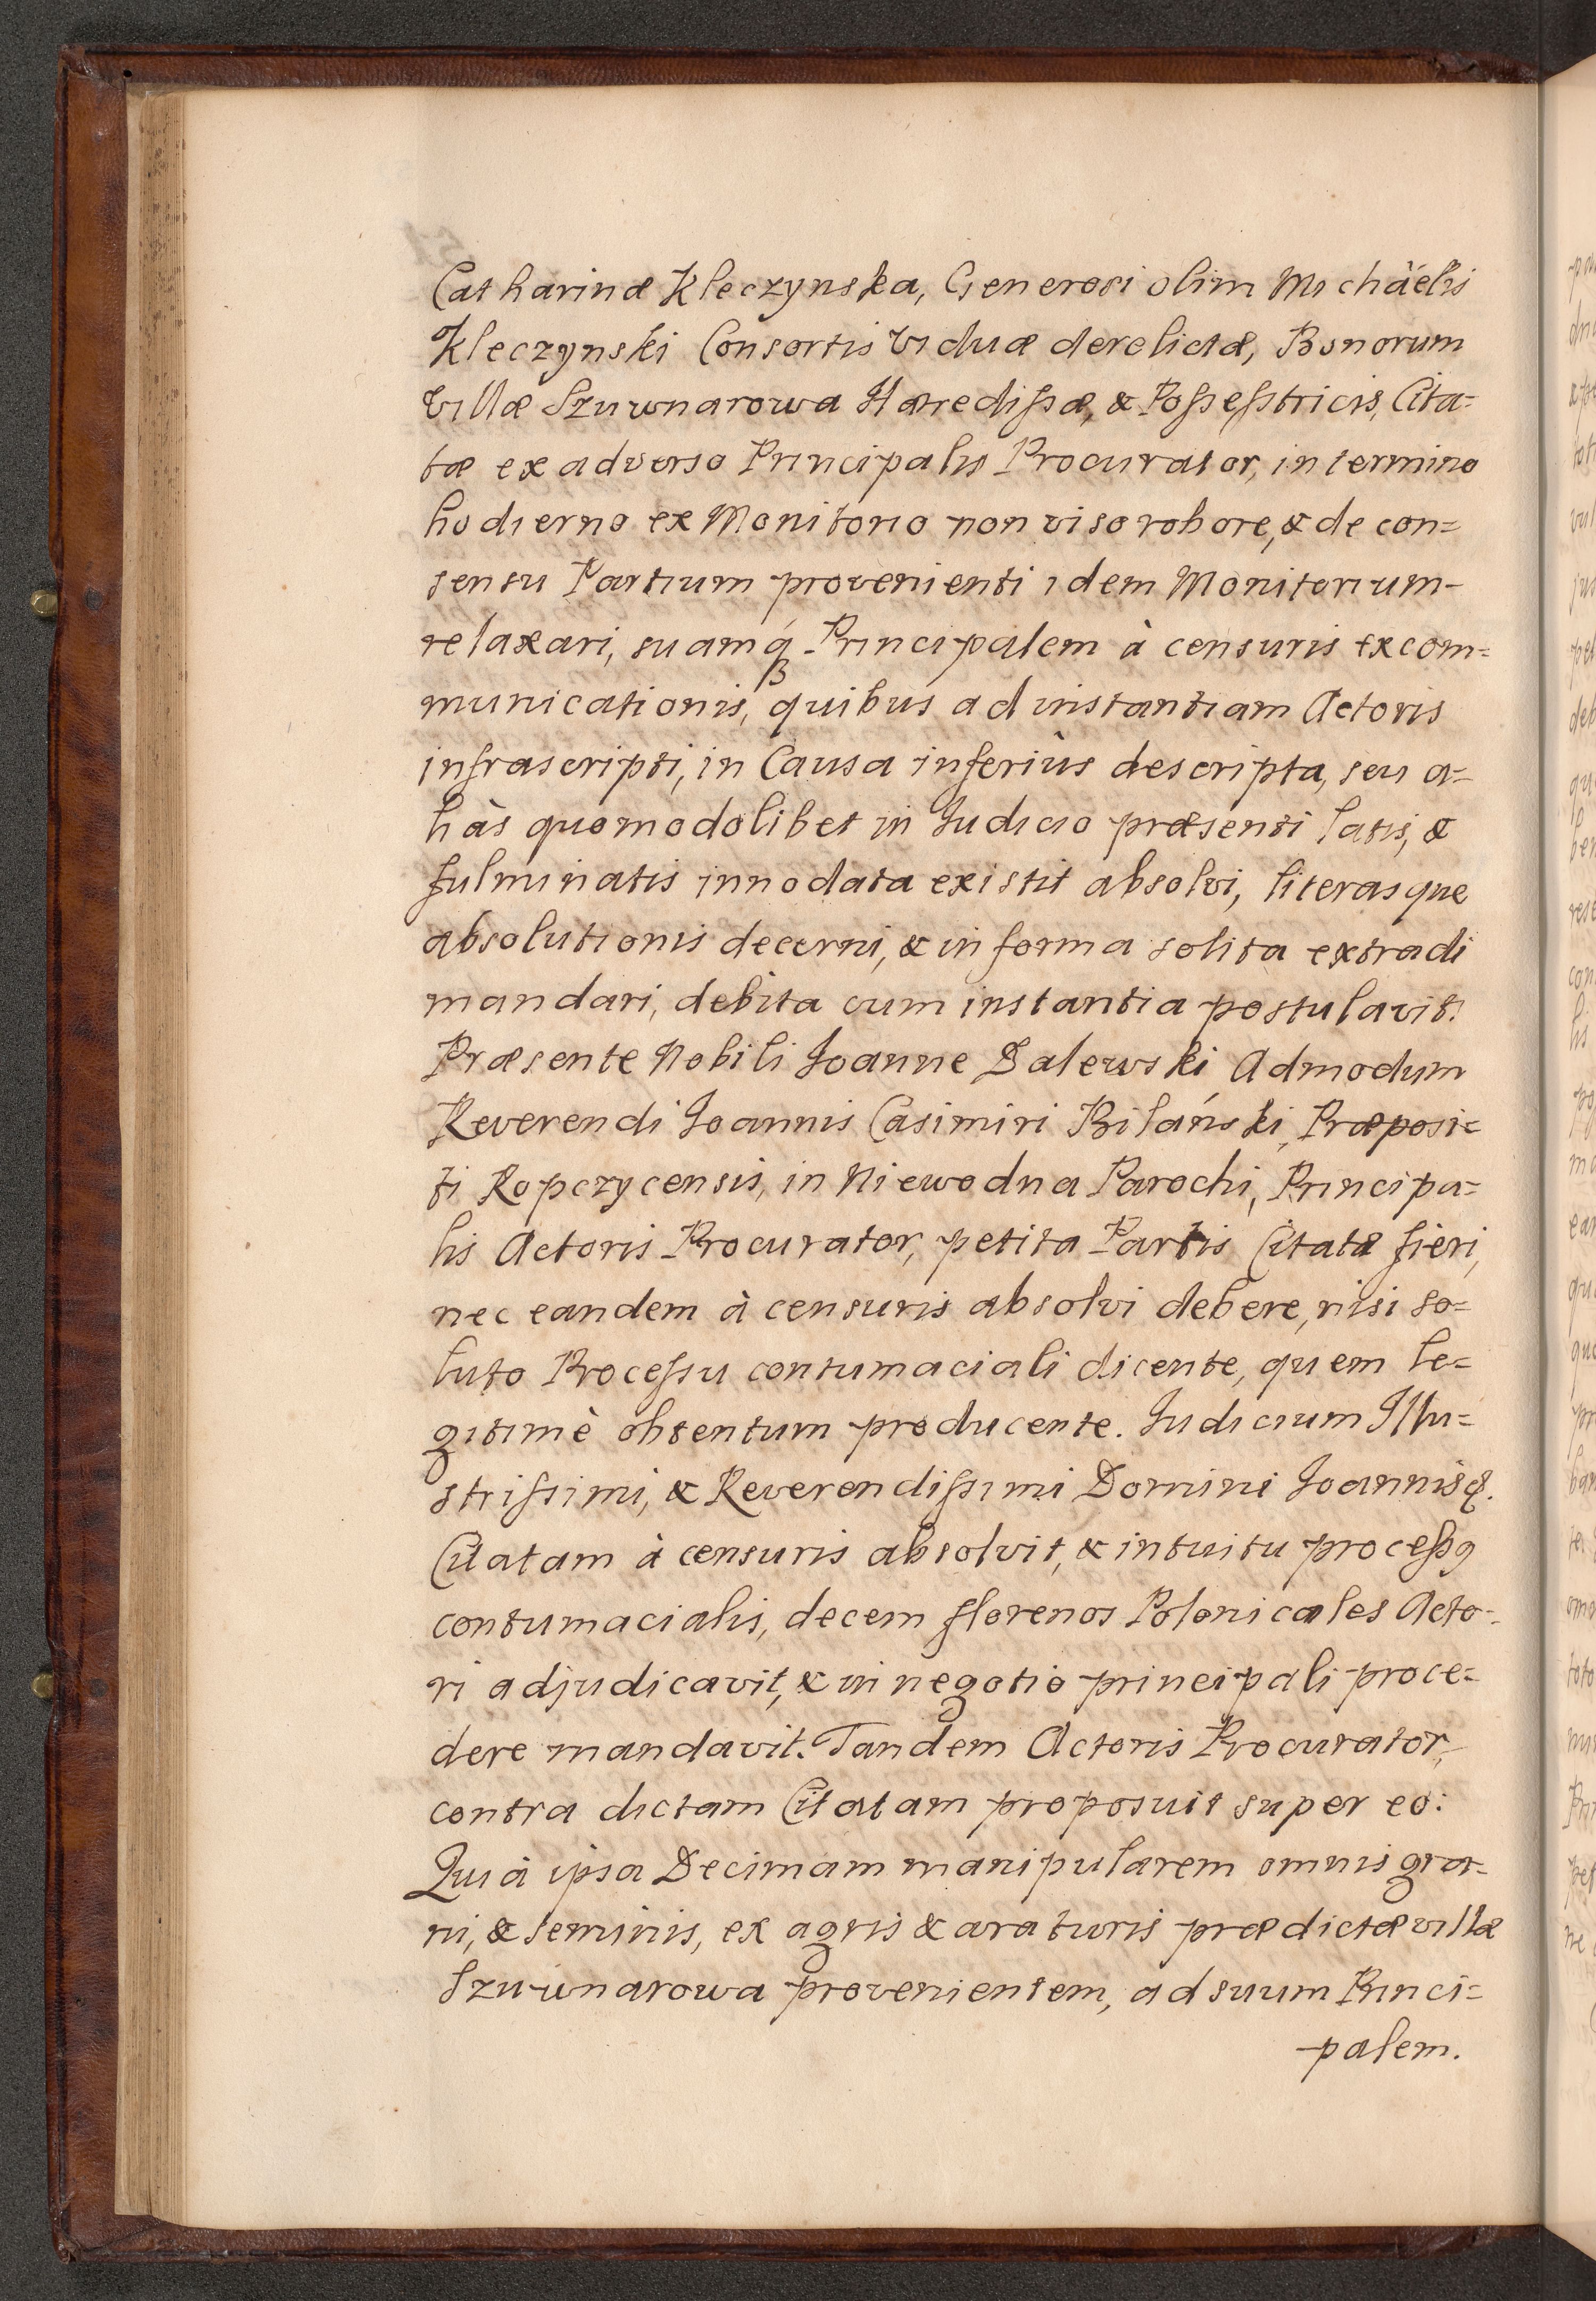 Catharinæ Kleczynska, Generosi olim Michäelis
Kleczynski Consortis Viduæ derelictæ, Bonorum
Villæ Szuwnarowa Hæredissæ, & Possesstricis, Cita=
tæ ex adverso Principalis Procurator, in termino
hodierno ex Monitorio non viso robore, & de con=
sensu Partium provenienti idem Monitorium
relaxari, suamq́ Principalem à censuris excom=
municationis, quibus ad instantiam Actoris
infrascripti, in Causa inferiùs descripta, seu a=
liàs quomodolibet in Iudicio præsenti latis, &
fulminatis innodata existit absolvi, literasque
absolutionis decerni, & in forma solita extradi
mandari, debita cum instantia postulavit.
Præsente Nobili Joanne Zalewski Admodum
Reverendi Joannis Casimiri Bilański, Præposi=
ti Ropczycensis, in Niewodna Parochi, Principa=
lis Actoris Procurator, petita Partis Citatæ fieri,
nec eandem à censuris absolvi debere, nisi so=
luto Processu contumaciali dicente, quem le=
gitimè obtentum producente. Iudicium Illu=
strissimi, & Reverendissimi Domini Joannis &.
Citatam à censuris absolvit, & intuitu processus
contumacialis, decem florenos Polonicales Acto=
ri adjudicavit, & in negotio principali proce=
dere mandavit. Tandem Actoris Procurator,
contra dictam Citatam proposuit super eo:
Quià ipsa Decimam manipularem omnis gra=
ni, & seminis, ex agris & araturis prædictæ villæ
Szuwnarowa provenientem, ad suum Princi=
palem.